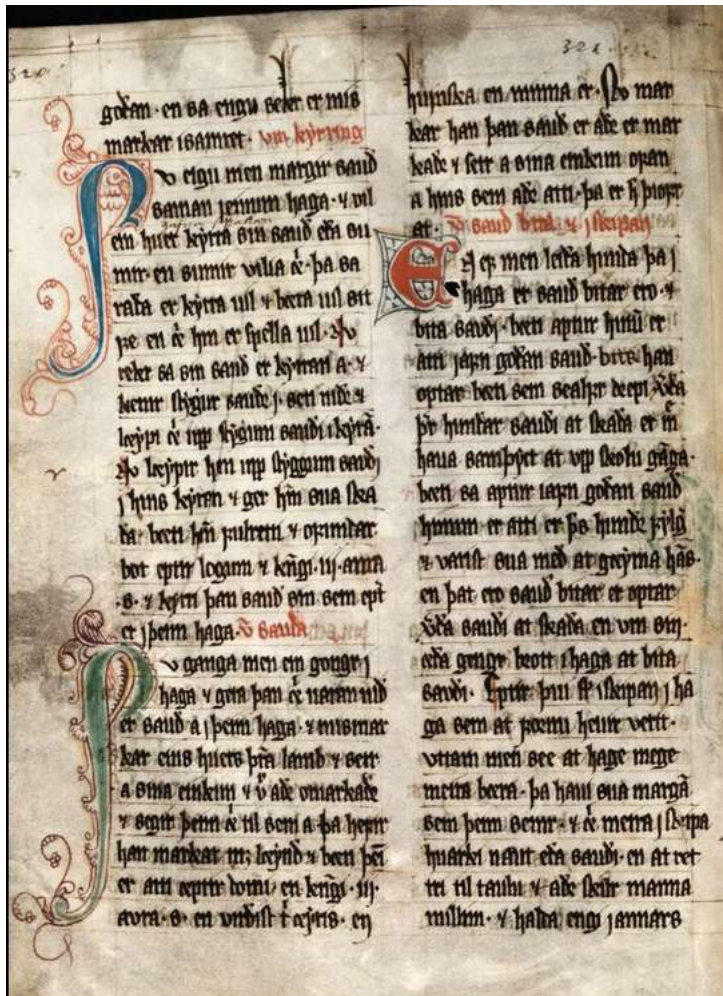 320.
321
goðan. en sa engu sekr er mis
markar isamret. vm kyrring
v eigu men margir sauð
saman jeinum haga. ⁊ vil
ein huer kyrra sin sauð eða su
mir. en sumir vilia ę. þa sa
raða er kyrra uil ⁊ betra uil sit
fe en ę hin er spella uil. Nv
rekr sa sin sauð er kyrran a. ⁊
kemr stygur sauðr j. sen niðr ⁊
løypr ę upp
Nv løypir hin upp styggum sauðj
j hins kyrran ⁊ ger
bøti
bot eptir logum ⁊ kngi. iij. aura
.s. ⁊ kyrri þan sauð sin sem ept
er j þeim haga. v sauða
v ganga men ein gongr j
haga ⁊ geta þan ę
er sauð a j þeim haga. ⁊ mismar
kar eins huers þra lamb ⁊ setr
a sina einkun ⁊ v aðr omarkaðr
⁊ segir þeim ę til sem a þa hefir
han markat m; løynd ⁊ bøti þei
er atti eptir domi. en kngi. iij.
aura. s. en
huinska en minna er. Nv mar
kar han þan sauð er aðr er mar
kaðr ⁊ setr a sina einkun ofan
a hins sem aðr atti. þa er h þiofr
at. v sauð bita. ⁊ jskipan
men leiða hunda þa j
haga er sauð bitar ero. ⁊
bita sauði. bøti aptur hinu er
atti jafn goðan sauð. bitr han
optar bøti sem
þr hundar sauði at skaða er m
haua samþyct at vpp skolu ganga.
bøti sa aptur iafn goðan sauð
hinum er atti er þs hundr fylg
⁊ varist sua med at greyma has.
en þat ero sauð bitar er optar
sauði at skaða en vm sin.
eða gengr brott i haga at bita
sauði. Eptir þui s iskipan j ha
ga sem at fornu heuir verit.
vttan men see at hage mege
meira bera. þa haui sua marga
sem þeim semr. ⁊ ę meira j skipa
huarki naut eða sauði. en at ret
tri til taulu ⁊ aðr skilr manna
millim. ⁊ halda engi jannars